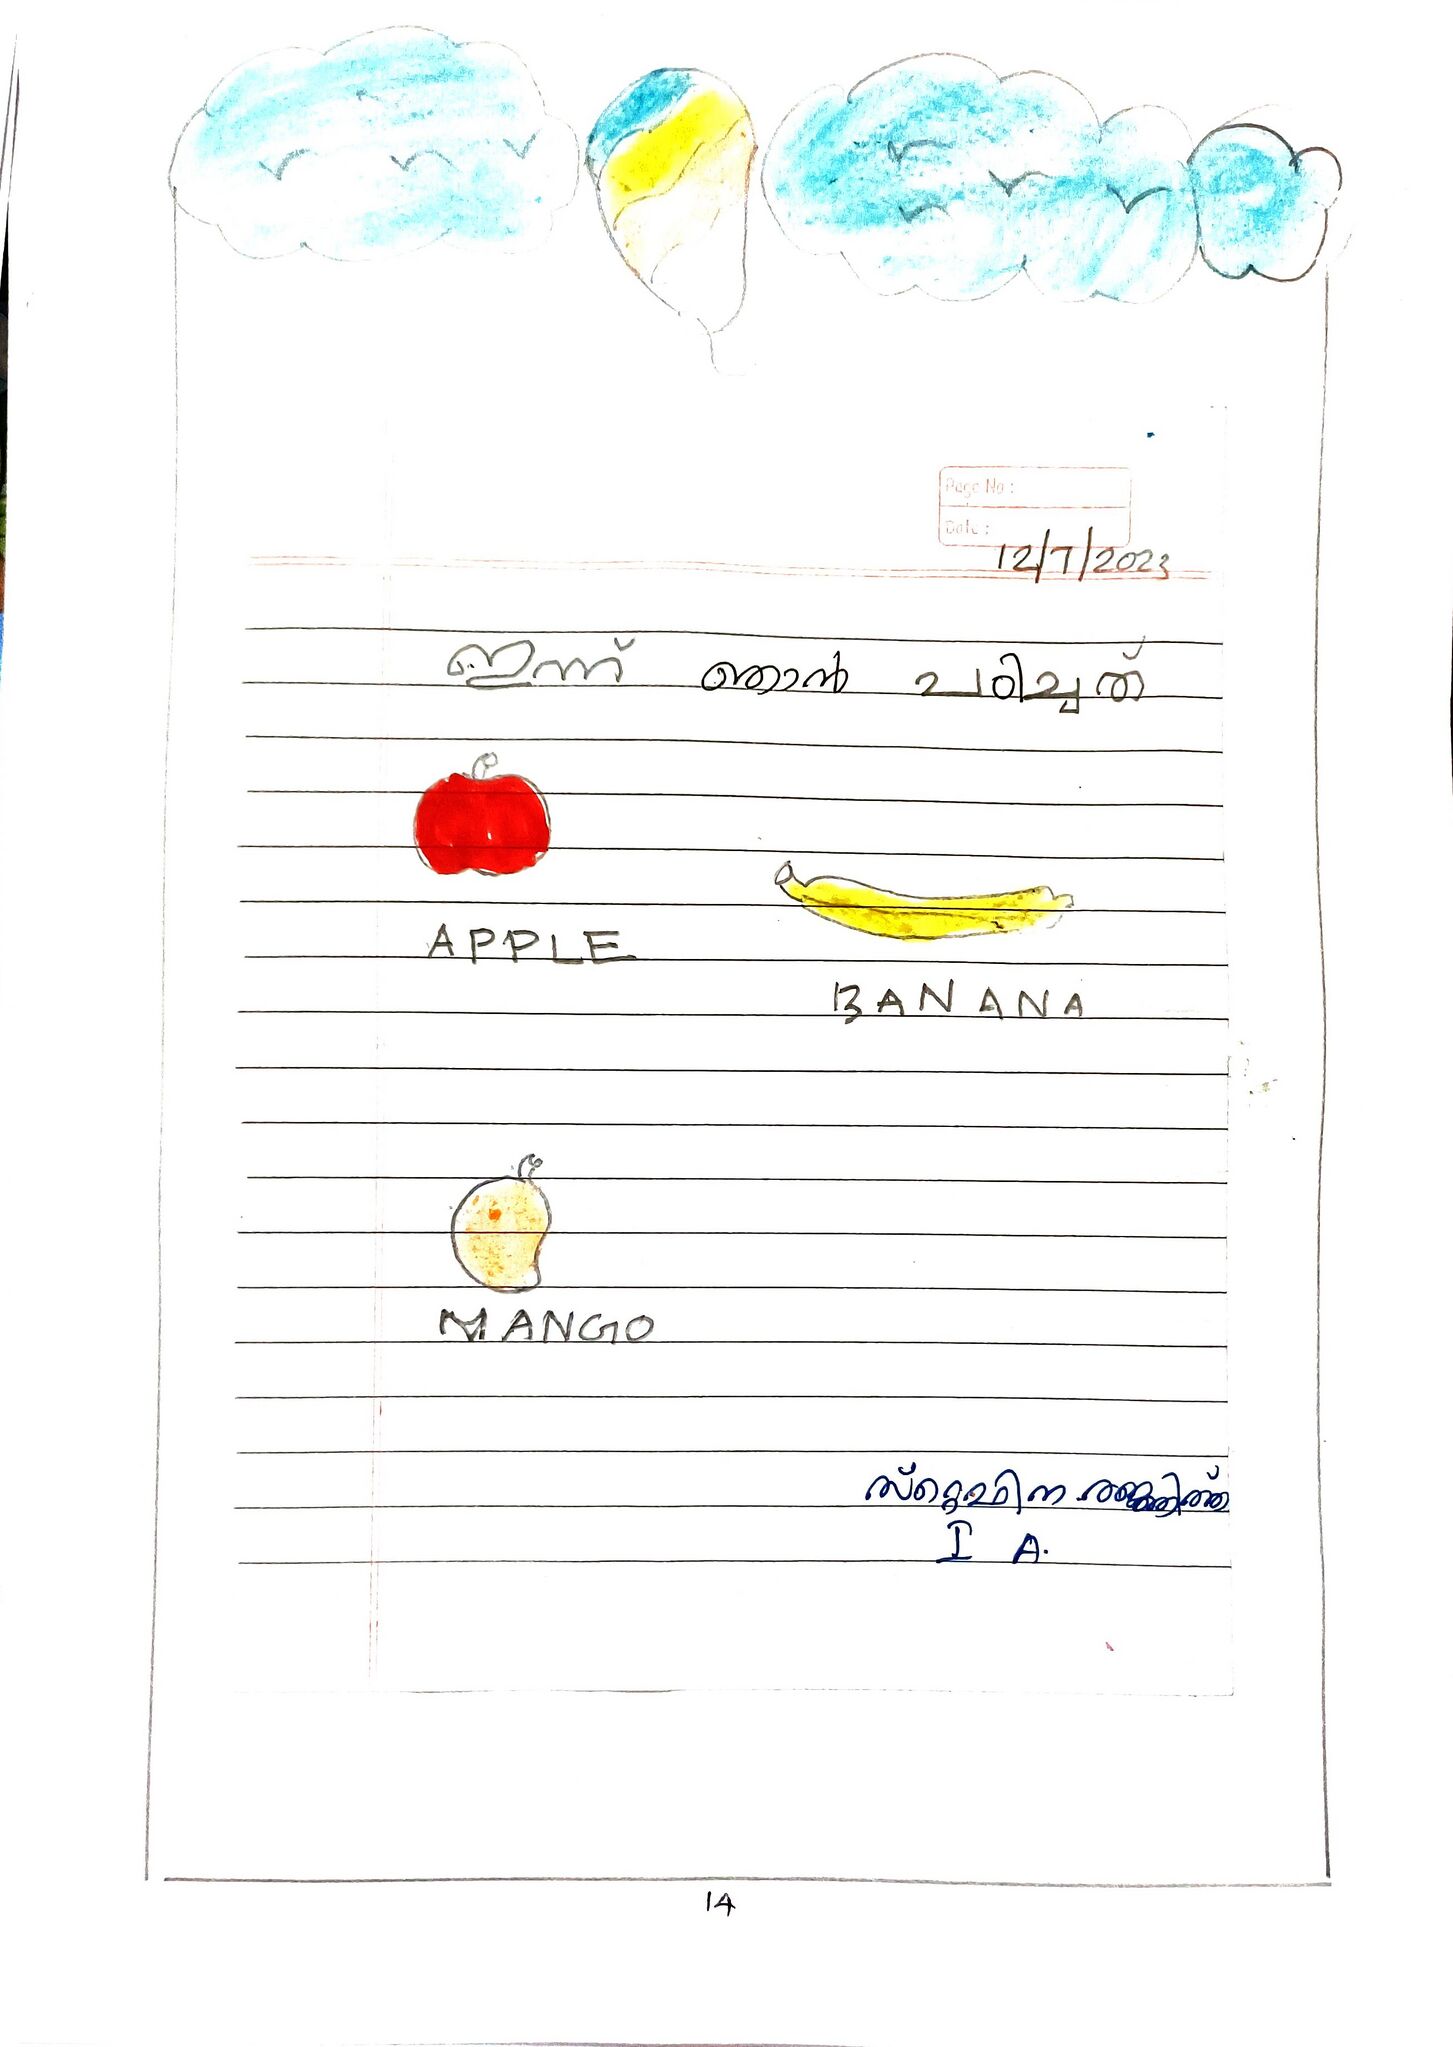 Page No :
Date :
12/7/2023
ഇന്ന് ഞാൻ പഠിച്ചത്
APPLE
BANANA
MANGO
സ്റ്റെഫിന രഞ്ജിത്ത്
I A.
14